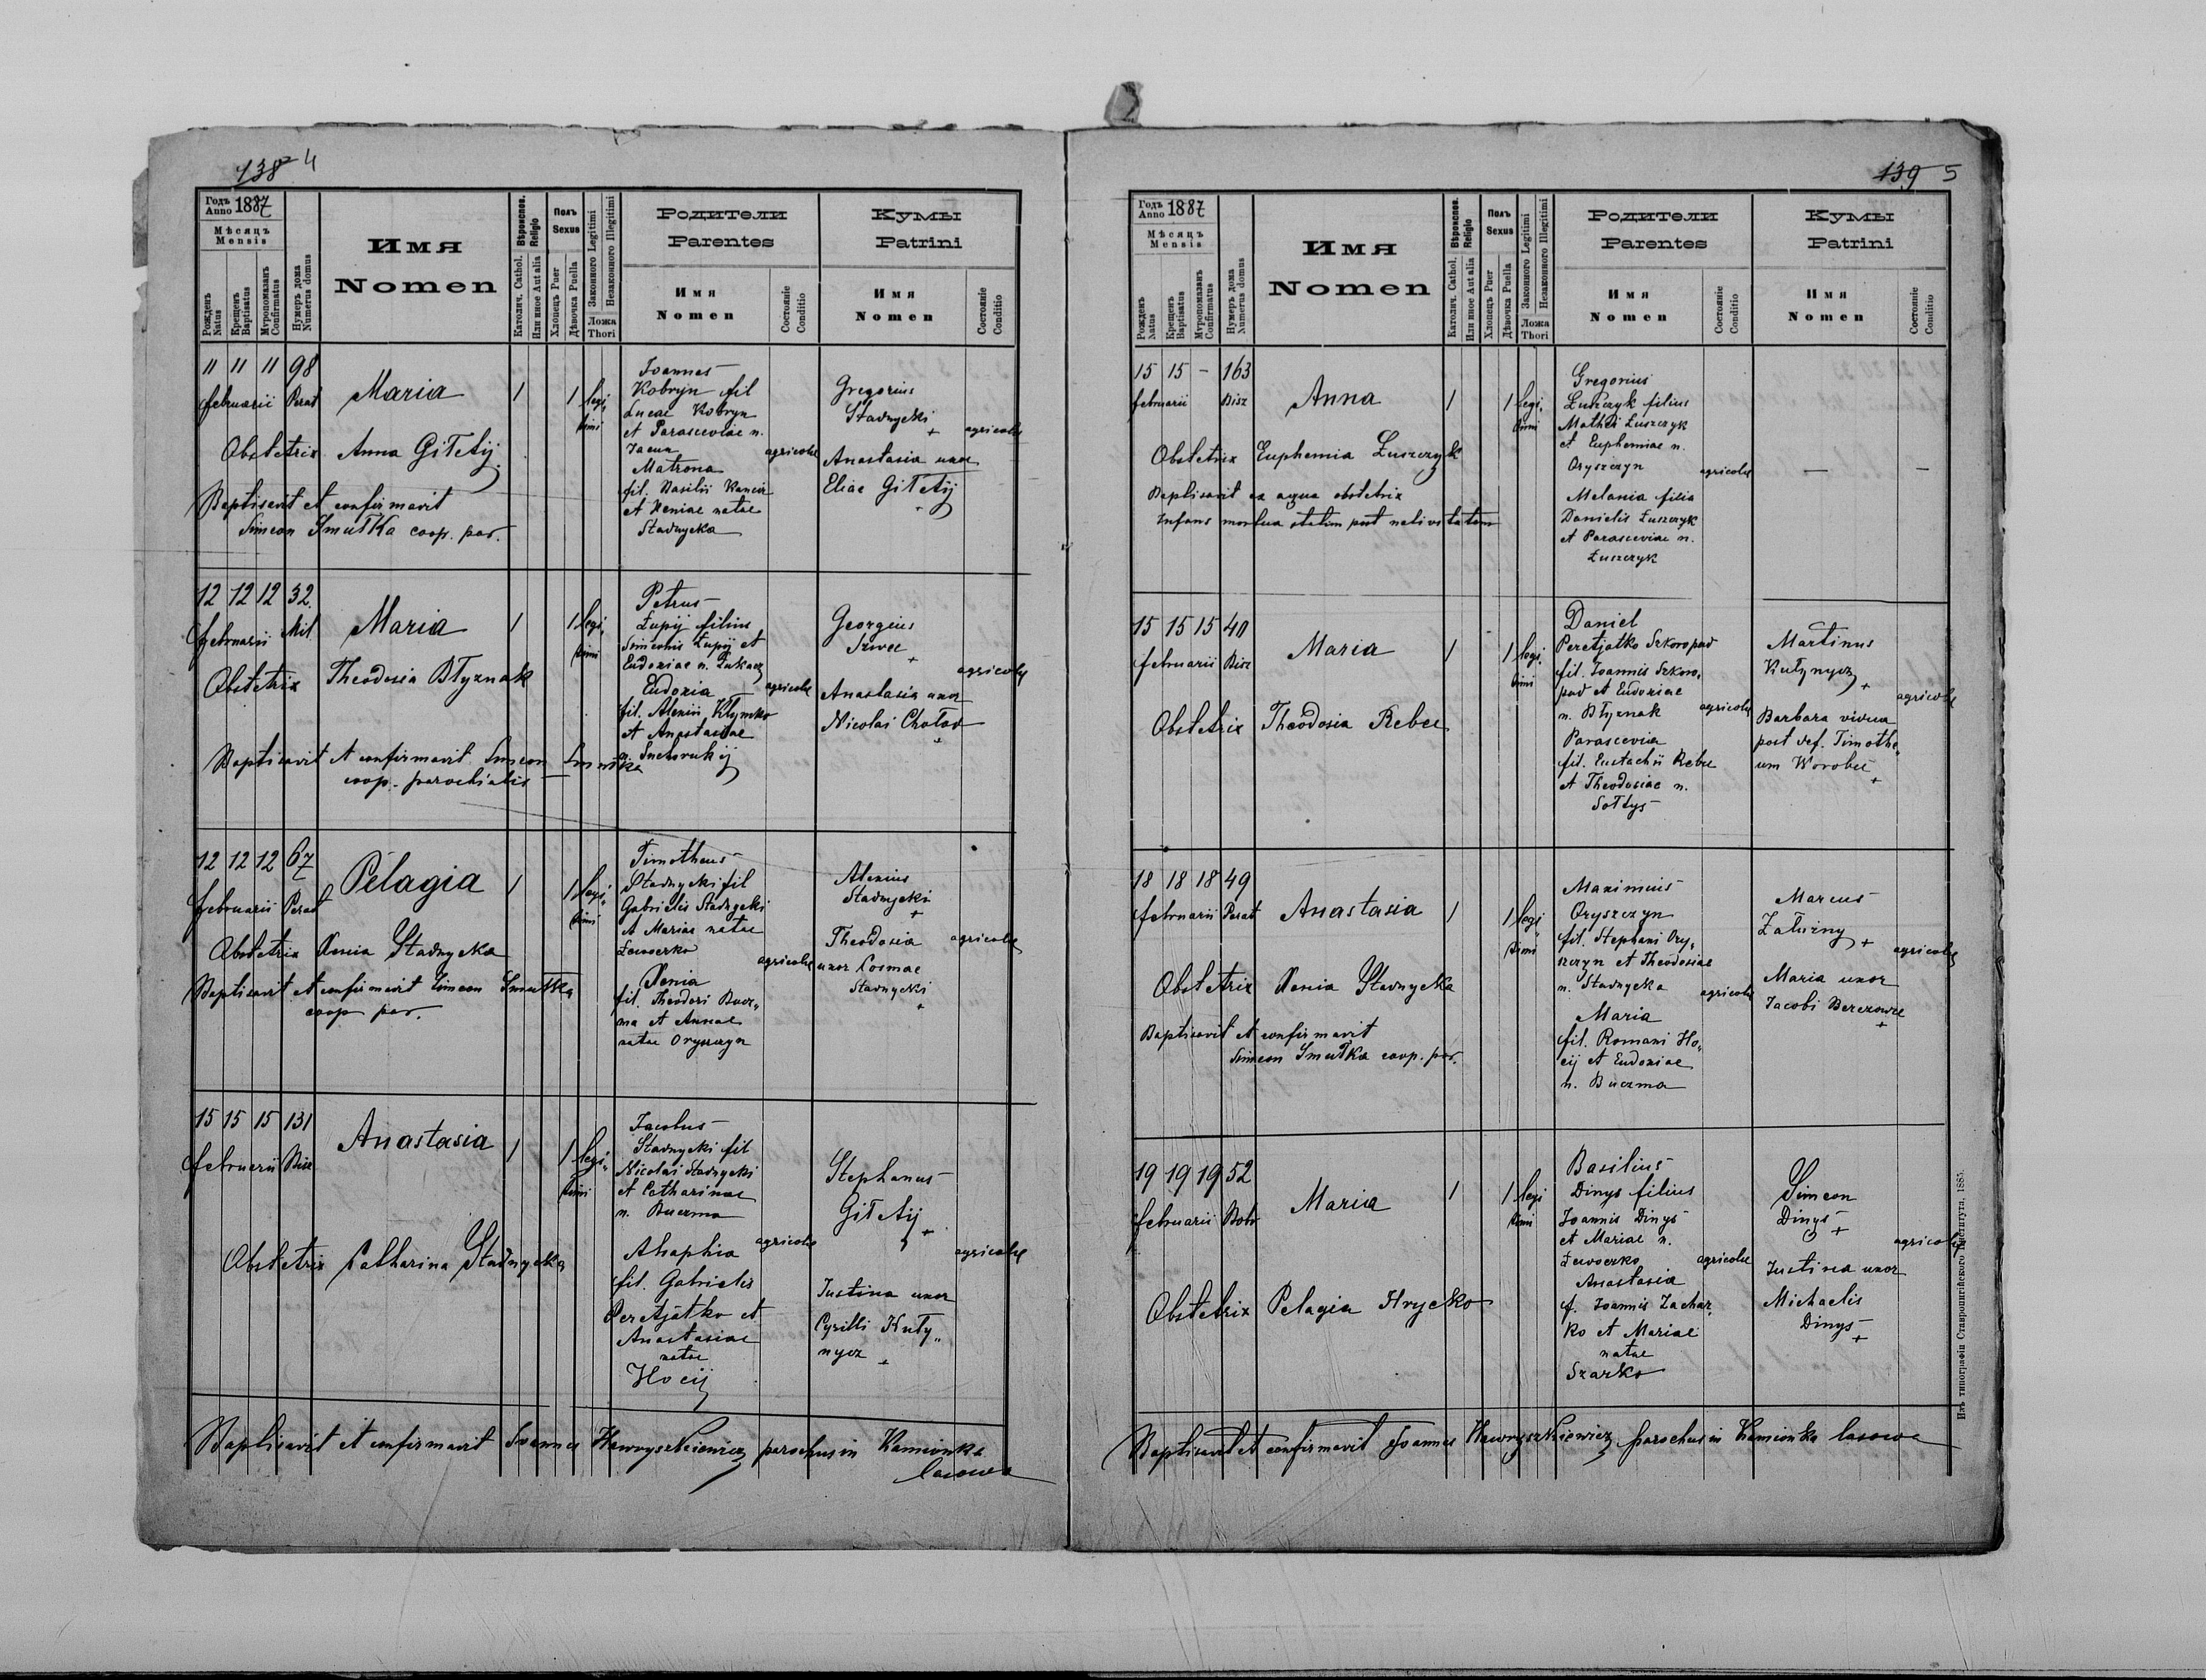 138 4
Годъ Anno 1887
Мѣсяцъ
Mensis
Рожденъ Natus
Крещенъ Baptisatus
Мѵропомазанъ Confirmatus
Нумеръ дома Numerus domus
Имя
Nomen
Вѣроиспов. Religio
Католич. Cathol.
Или иное Aut alia
Полъ
Sexus
Хлопецъ Puer
Дѣвочка Puella
Законного Legitimi
Незаконного Illegitimi
Ложа
Thori
Родители
Parentes
Имя
Nomen
Состояніе
Conditio
Кумы
Patrini
Имя
Nomen
Состояніе
Conditio
11 11 11 98
februarii Perat
Maria
1 1 legi„
timi
Joannes
Kobryn fil
Lucae Kobryn
et Parasceviae n.
Matrona
fil. Basilii
et Xeniae natae
Stadnycka
agricolae
Gregorius
Stadnycki
+
Anastasia uxor
Eliae Giłetij
+
agricolae
Obstetrix Anna Giłetij
Baptisavit et confirmavit
Simeon Smułka coop. par.
12 12 12 32.
februarii Mil.
Maria
1 1 legi„
timi
Petrus
Łupij filius
Simeonis Łupij et
Eudoxiae n. Łukacz
Eudoxia
fil. Alexii Kłymko
et Anastasiae
n. Suchorukij
agricolae
Georgius
Szwec
+
Anastasia uxor
Nicolai Chołod
+
agricolae
Obstetrix Theodosia Błyznak
Baptisavit et confirmavit Simeon Smułka
coop. parochialis
12 12 12 67
februarii Perat
Pelagia
1 1 legi„
timi
Timotheus
Stadnycki fil
Gabrielis Stadnycki
et Mariae natae
Lewoczko
Xenia
fil. Theodori Bucz„
ma et Annae
natae Oryszczyn
agricolae
Alexius
Stadnycki
+
Theodosia
uxor Cosmae
Stadnycki
+
agricolae
Obstetrix Xenia Stadnycka
Baptisavit et confirmavit Simeon Smułka
coop par.
15 15 15 131
februarii Bisz
Anastasia
1 1 legi„
timi
Jacobus
Stadnycki fil
Nicolai Stadnycki
et Catharinae
n. Buczma
Ahaphia
fil. Gabrielis
Peretjatko et
Anastasiae
natae
Hocij
agricolae
Stephanus
Giłetij
+
Justina uxor
Cyrilli Kuty„
nycz
+
agricolae
Obstetrix Catharina Stadnycka
Baptisavit et confirmavit Joannes Hawryszkiewicz parochus in Kamionka
lasowa
139 5
Годъ Anno 1887
Мѣсяцъ
Mensis
Рожденъ Natus
Крещенъ Baptisatus
Мѵропомазанъ Confirmatus
Нумеръ дома Numerus domus
Имя
Nomen
Вѣроиспов. Religio
Католич. Cathol.
Или иное Aut alia
Полъ
Sexus
Хлопецъ Puer
Дѣвочка Puella
Законного Legitimi
Незаконного Illegitimi
Ложа
Thori
Родители
Parentes
Имя
Nomen
Состояніе
Conditio
Кумы
Patrini
Имя
Nomen
Состояніе
Conditio
15 15 – 163
februarii Bisz
Anna
1 1 legi„
timi
Gregorius
Łuszczyk filius
Mathei Łuszczyk
et Euphemiae n.
Oryszczyn
Melania filia
Danielis Łuszczyk
et Parasceviae n.
Łuszczyk
agricolae
— –
Obstetrix Euphemia Łuszczyk
Baptisavit ex aqua obstetrix
Infans mortua statim post nativitatem
15 15 15 40
februarii Bisz
Maria
1 1 legi„
timi
Daniel
Peretjatko Szkoropad
fil. Joannis Szkoro„
pad et Eudoxiae
n. Błyznak
Parascevia
fil. Eustachii Rebee
et Theodosiae n.
Sołtys
agricolae
Martinus
Kutynycz
+
Barbara vidua
post def. Timothe„
um Worobec
+
agricolae
Obstetrix Theodosia Rebee
18 18 18 49
februarii Perat
Anastasia
1 1 legi„
timi
Maximus
Oryszczyn
fil. Stephani Ory„
szczyn et Theodosiae
n. Stadnycka
Maria
fil. Romani Ho„
cij et Eudoxiae
n. Buczma
agricolae
Marcus
Załużny
+
Maria uxor
Jacobi Berezowee
+
agricolae
Obstetrix Xenia Stadnycka
Baptisavit et confirmavit
Simeon Smułka coop. par.
19 19 19 52
februarii Bobr
Maria
1 1 legi
timi
Basilius
Dinys filius
Joannis Dinys
et Mariae n.
Lewoczko
Anastasia
f. Joannis Zachar„
ko et Mariae
natae
Szarko
agricolae
Simeon
Dinys
+
Justina uxor
Michaelis
Dinys
+
agricolae
Obstetrix Pelagia Hrycko
Baptisavit et confirmavit Joannes Hawryszkiewicz parochus in Kamionka lasowa
Изъ типографіи Ставропигійского Института, 1885.